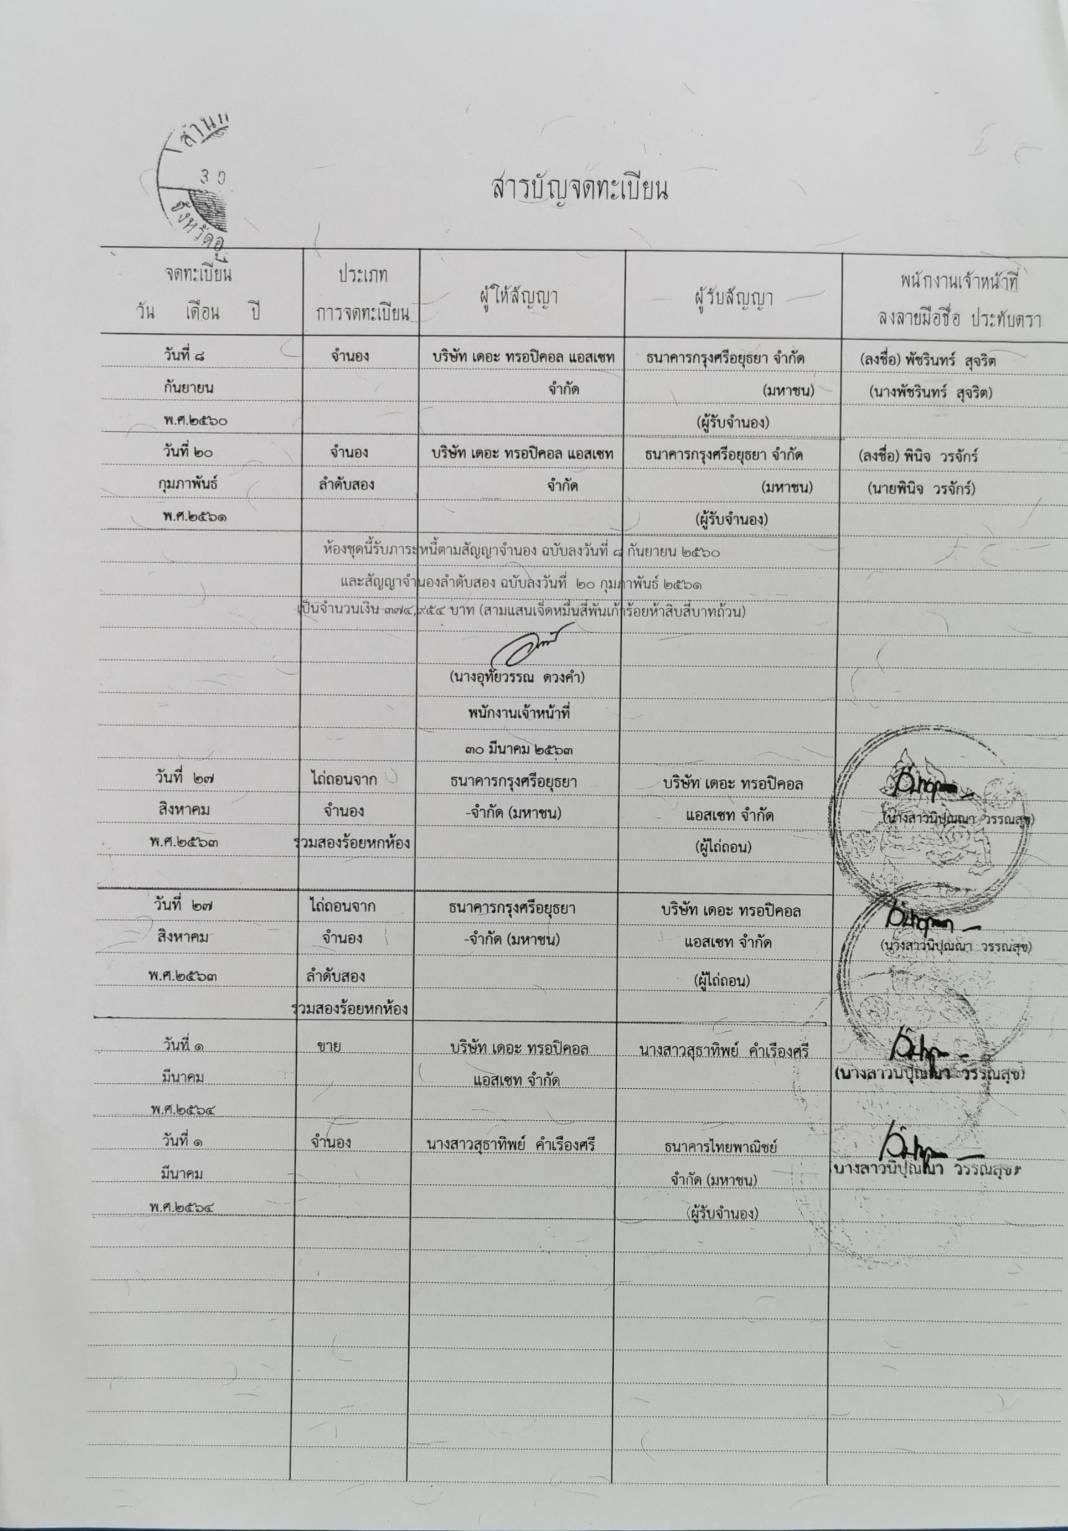 สำนก
30
จังหวัดอุ
สารบัญจดทะเบียน
จดทะเบียน
วัน เดือน ปี
ประเภท
การจดทะเบียน
ผู้ให้สัญญา
ผู้รับสัญญา
พนักงานเจ้าหน้าที่
ลงลายมือชื่อ ประทับตรา
วันที่ ๘ จำนอง บริษัท เดอะ ทรอปิคอล แอสเซท ธนาคารกรุงศรีอยุธยา จำกัด (ลงชื่อ) พัชรินทร์ สุจริต
กันยายน จำกัด (มหาชน) (นางพัชรินทร์ สุจริต)
พ.ศ.๒๕๖๐ (ผู้รับจำนอง)
วันที่ ๒๐ จำนอง บริษัท เดอะ ทรอปิคอล แอสเซท ธนาคารกรุงศรีอยุธยา จำกัด (ลงชื่อ) พินิจ วรจักร์
กุมภาพันธ์ ลำดับสอง จำกัด (มหาชน) (นายพินิจ วรจักร์)
พ.ศ.๒๕๖๑ (ผู้รับจำนอง)
ห้องชุดนี้รับภาระหนี้ตามสัญญาจำนอง ฉบับลงวันที่ ๘ กันยายน ๒๕๖๐
และสัญญาจำนองลำดับสอง ฉบับลงวันที่ ๒๐ กุมภาพันธ์ ๒๕๖๑
เป็นจำนวนเงิน ๓๗๔,๙๕๔ บาท (สามแสนเจ็ดหมื่นสี่พันเก้าร้อยห้าสิบสี่บาทถ้วน)
(นางอุทัยวรรณ ดวงคำ)
พนักงานเจ้าหน้าที่
๓๐ มีนาคม ๒๕๖๓
วันที่ ๒๗ ไถ่ถอนจาก ธนาคารกรุงศรีอยุธยา บริษัท เดอะ ทรอปิคอล
สิงหาคม จำนอง -จำกัด (มหาชน) แอสเซท จำกัด (นางสาวนิปุณณา วรรณสุข)
พ.ศ.๒๕๖๓ รวมสองร้อยหกห้อง (ผู้ไถ่ถอน)
วันที่ ๒๗ ไถ่ถอนจาก ธนาคารกรุงศรีอยุธยา บริษัท เดอะ ทรอปิคอล
สิงหาคม จำนอง -จำกัด (มหาชน) แอสเซท จำกัด (นางสาวนิปุณณา วรรณสุข)
พ.ศ.๒๕๖๓ ลำดับสอง (ผู้ไถ่ถอน)
รวมสองร้อยหกห้อง
วันที่ ๑ ขาย บริษัท เดอะ ทรอปิคอล นางสาวสุธาทิพย์ คำเรืองศรี
มีนาคม แอสเซท จำกัด (นางสาวนิปุณณา วรรณสุข)
พ.ศ.๒๕๖๔
วันที่ ๑ จำนอง นางสาวสุธาทิพย์ คำเรืองศรี ธนาคารไทยพาณิชย์
มีนาคม จำกัด (มหาชน) นางสาวนิปุณณา วรรณสุข
พ.ศ.๒๕๖๔ (ผู้รับจำนอง)